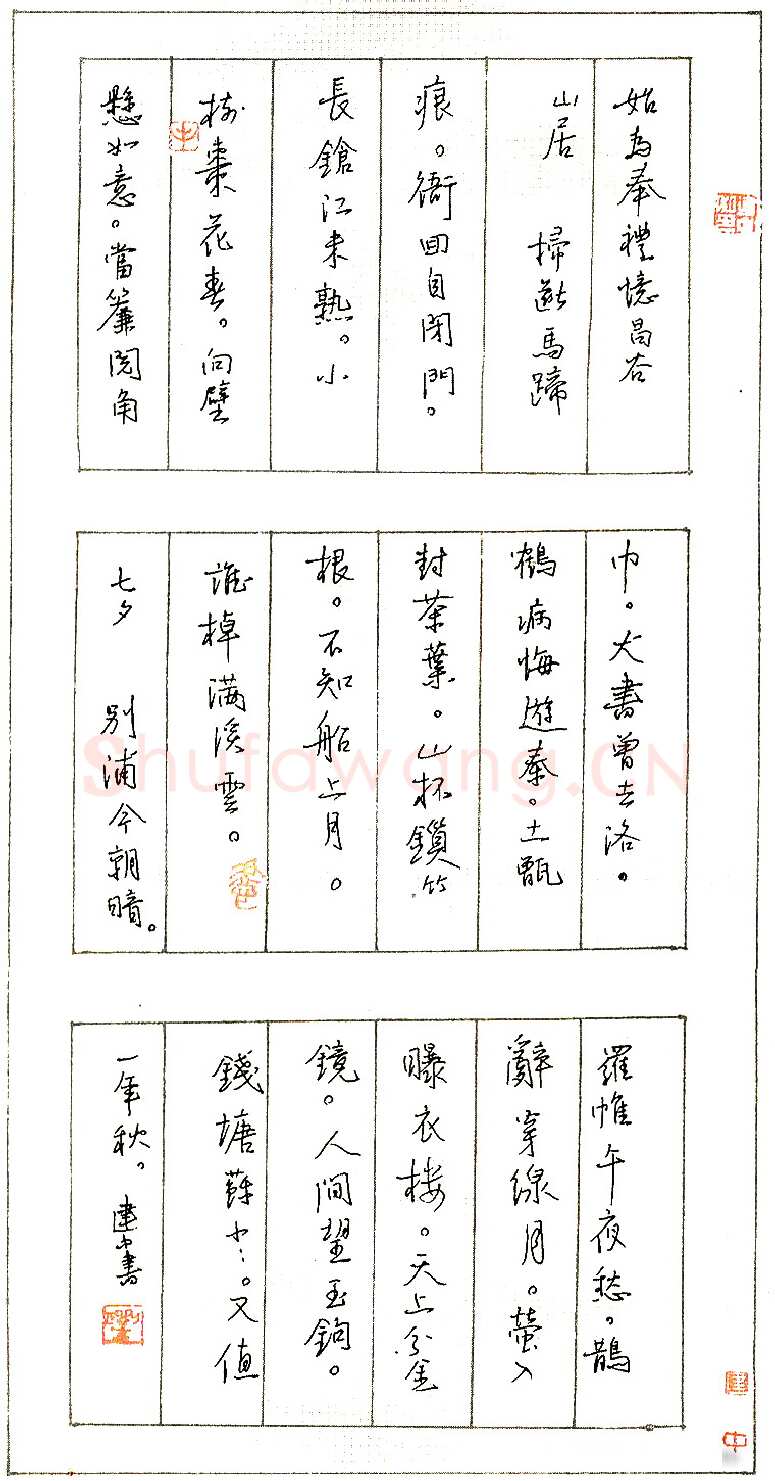 始為奉禮憶昌谷
山居 掃斷馬蹄
痕。衙回自閉門。
長鎗江米熟。小
樹棗花春。向壁
懸如意。當簾閱角
巾。犬書曾去洛。
鶴病悔遊秦。土甑
封茶葉。山杯鎖竹
根。不知船上月。
誰棹满溪雲。
七夕 别浦今朝暗。
羅帷午夜愁。鵲
辭穿線月。螢入
曝衣楼。天上分金
鏡。人間望玉鉤。
錢塘蘇小:。又值
一年秋。建中書
Shufawang.CN